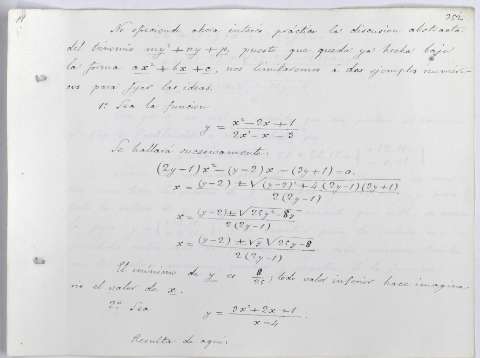 252
No ofreciendo ahora interés práctico la discusion abstracta
del trinomio my² + ny + p, puesto que queda ya hecha bajo
la forma ax² + bx + c, nos limitaremos á dos ejemplos numéri-
cos para fijar las ideas.
1º Sea la funcion
y = (x² - 2x + 1) / (2x² - x - 3)
Se hallará sucesivamente:
(2y-1)x² - (y-2)x - (3y+1) = 0.
x = ((y-2) ± √((y-2)² + 4(2y-1)(3y+1))) / 2(2y-1)
x = ((y-2) ± √(25y² - 8y)) / 2(2y-1)
x = ((y-2) ± √y √(25y - 8)) / 2(2y-1)
El mínimo de y es 8/25; todo valor inferior hace imagina-
rio el valor de x.
2º Sea
y = (2x² + 2x + 1) / (x - 4).
Resulta de aquí: